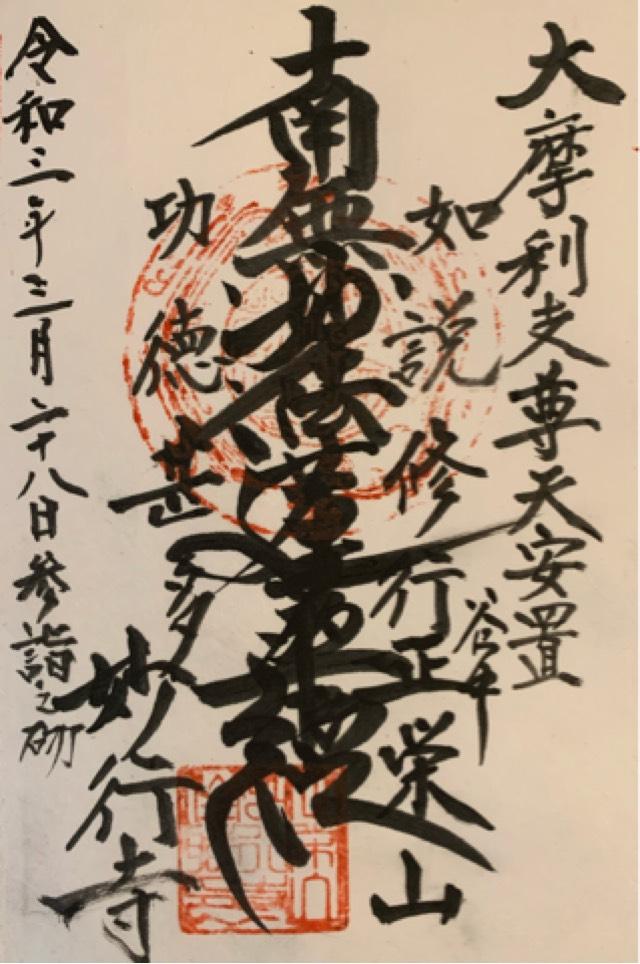 大摩利支尊天安置
谷中
如説修行
正栄山
南無妙法蓮華經
功徳甚多
妙行寺
令和三年三月二十八日参詣之砌